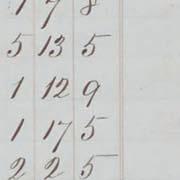 1 7 8
5 13 5
1 12 9
1 17 5
2 2 5